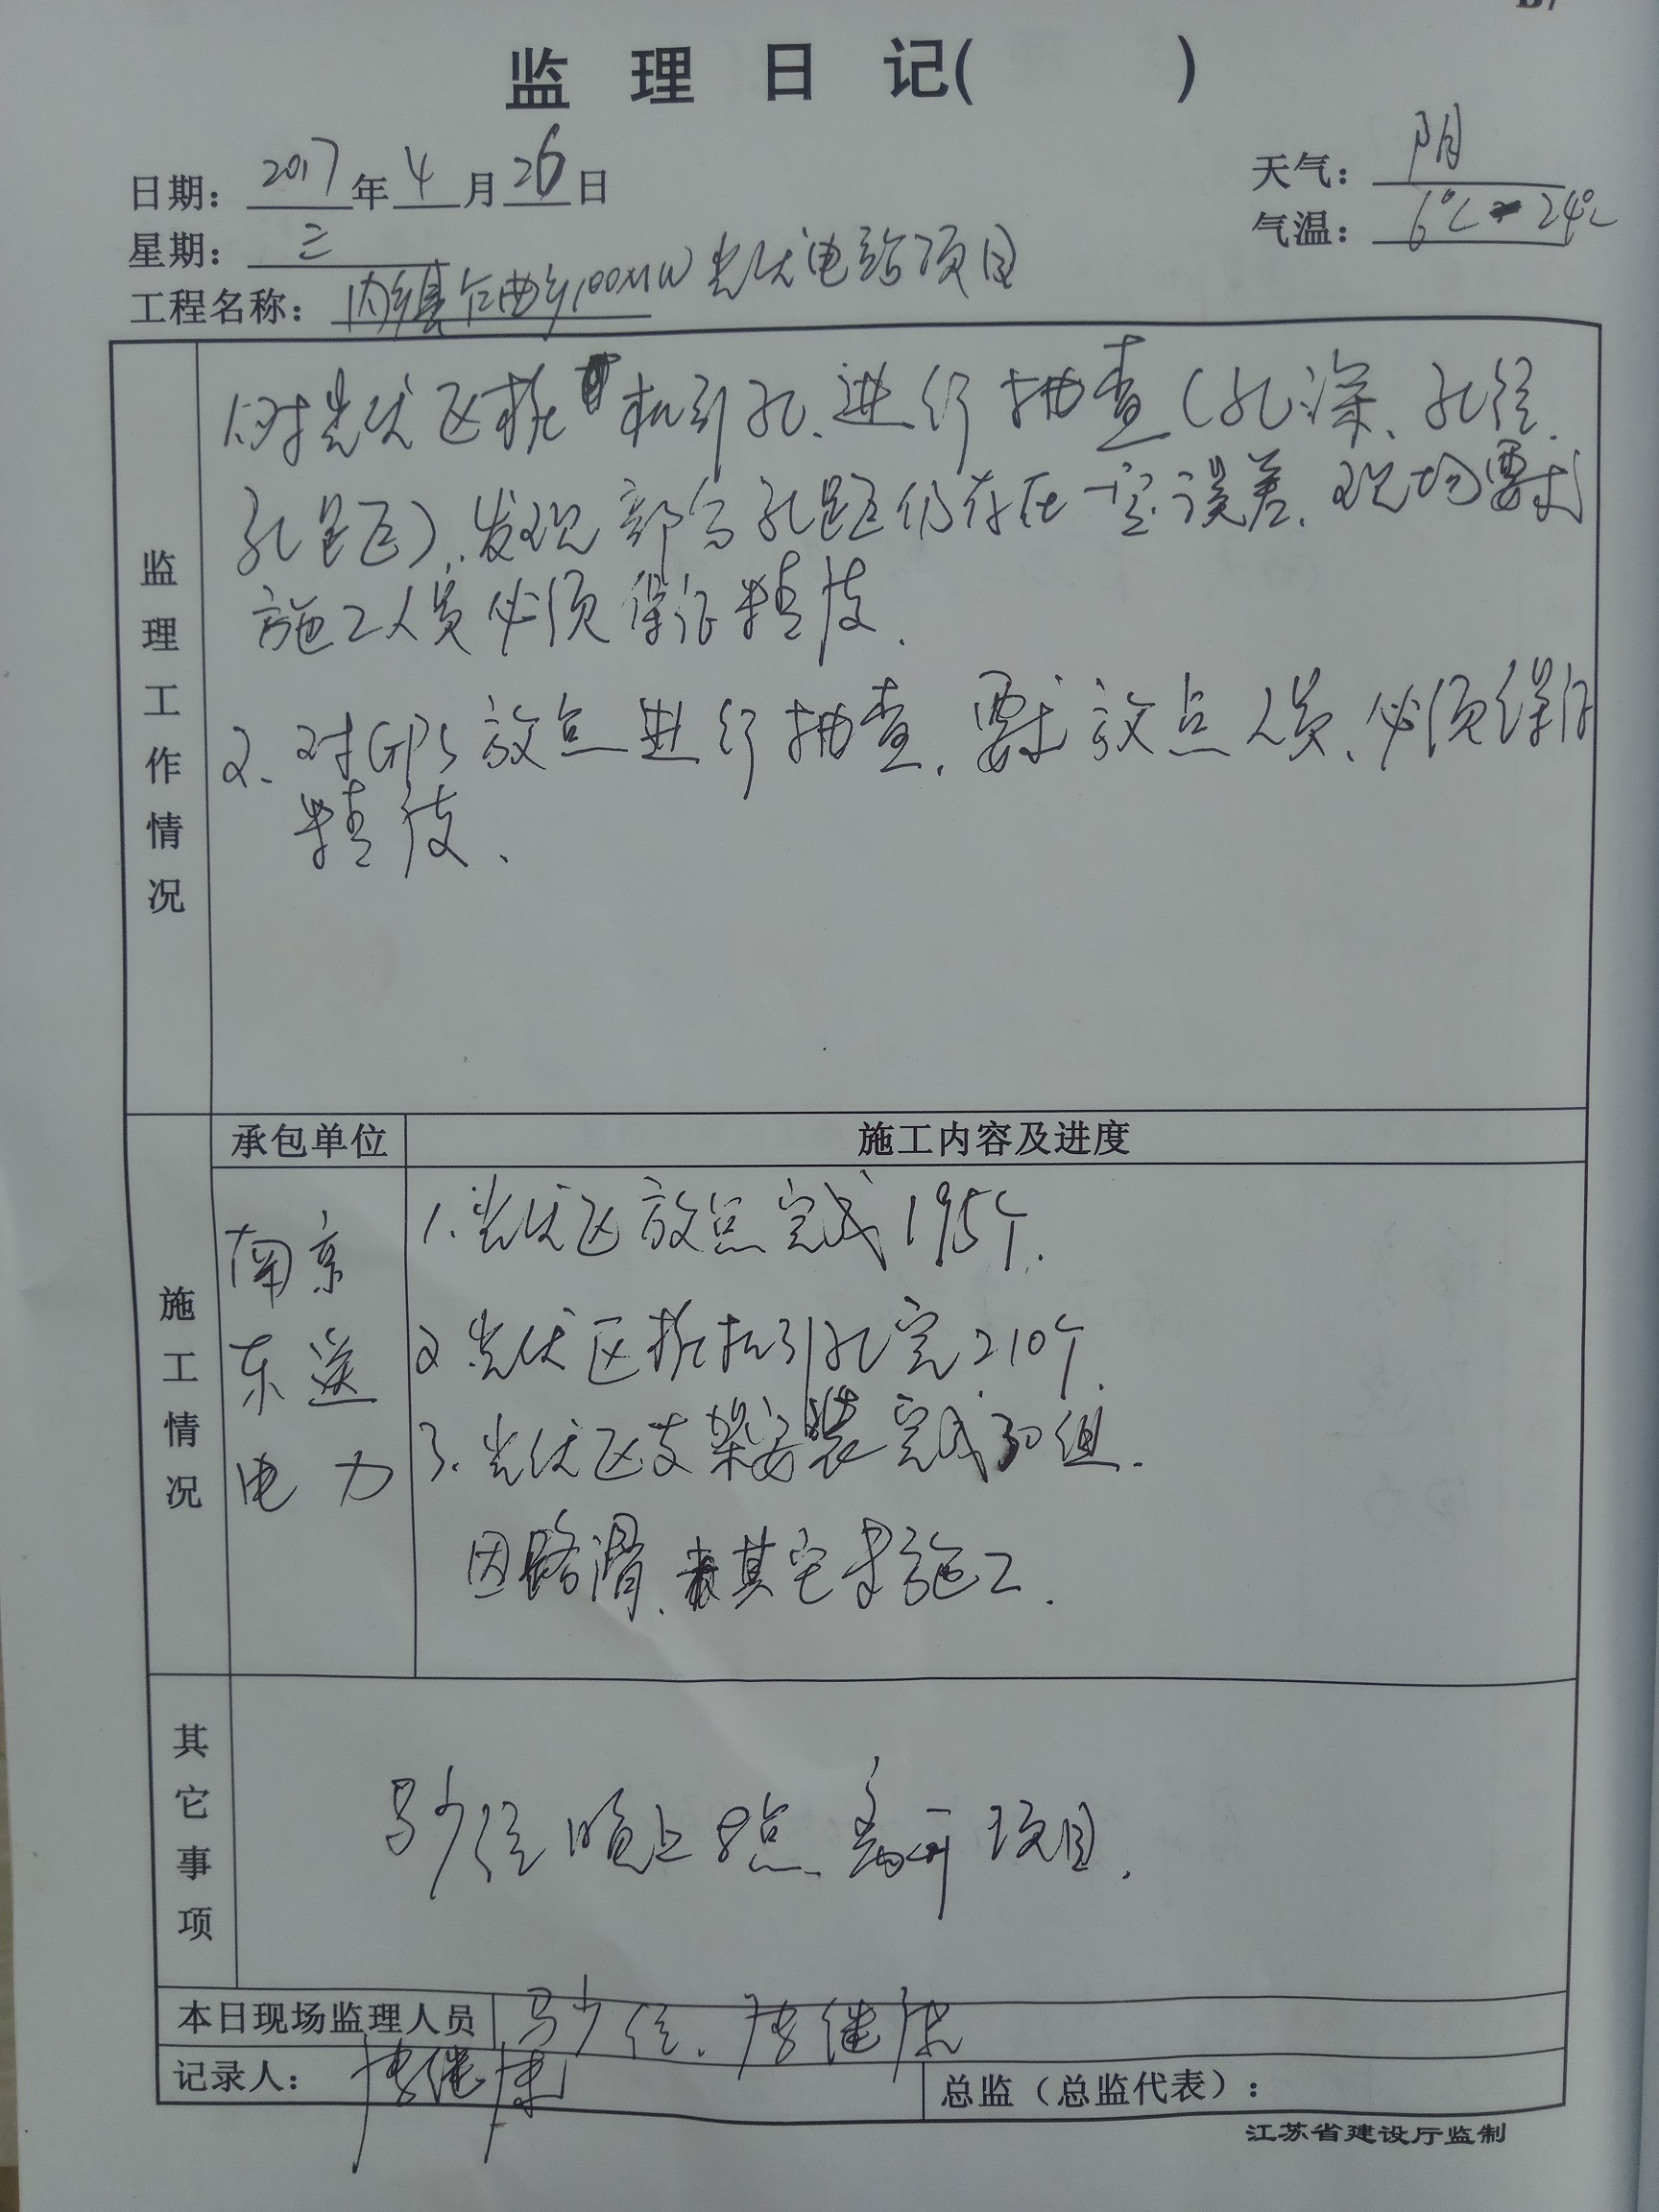 监 理 日 记(          )
日期： 2017 年 4 月 26 日
天气： 阴
星期： 三
气温： 6℃~24℃
工程名称： 内乡县乍曲乡100MW光伏电站项目
监理工作情况
1.对光伏区桩机引孔、进行抽查(孔深、孔径、
孔距)、发现部分孔距仍存在一定误差、现场要求
施工人员必须保证精度、
2、对GPS放点进行抽查、要求放点人员、必须保证
精度、
施工情况
承包单位
施工内容及进度
南京
东送
电力
1.光伏区放点完成195个、
2.光伏区桩机引孔完210个、
3.光伏区支架安装完成30组.
因路滑、其它未施工.
其它事项
马少径晚上8点、离开项目、
本日现场监理人员 马少径、唐继康
记录人： 唐继康
总监（总监代表）：
江苏省建设厅监制